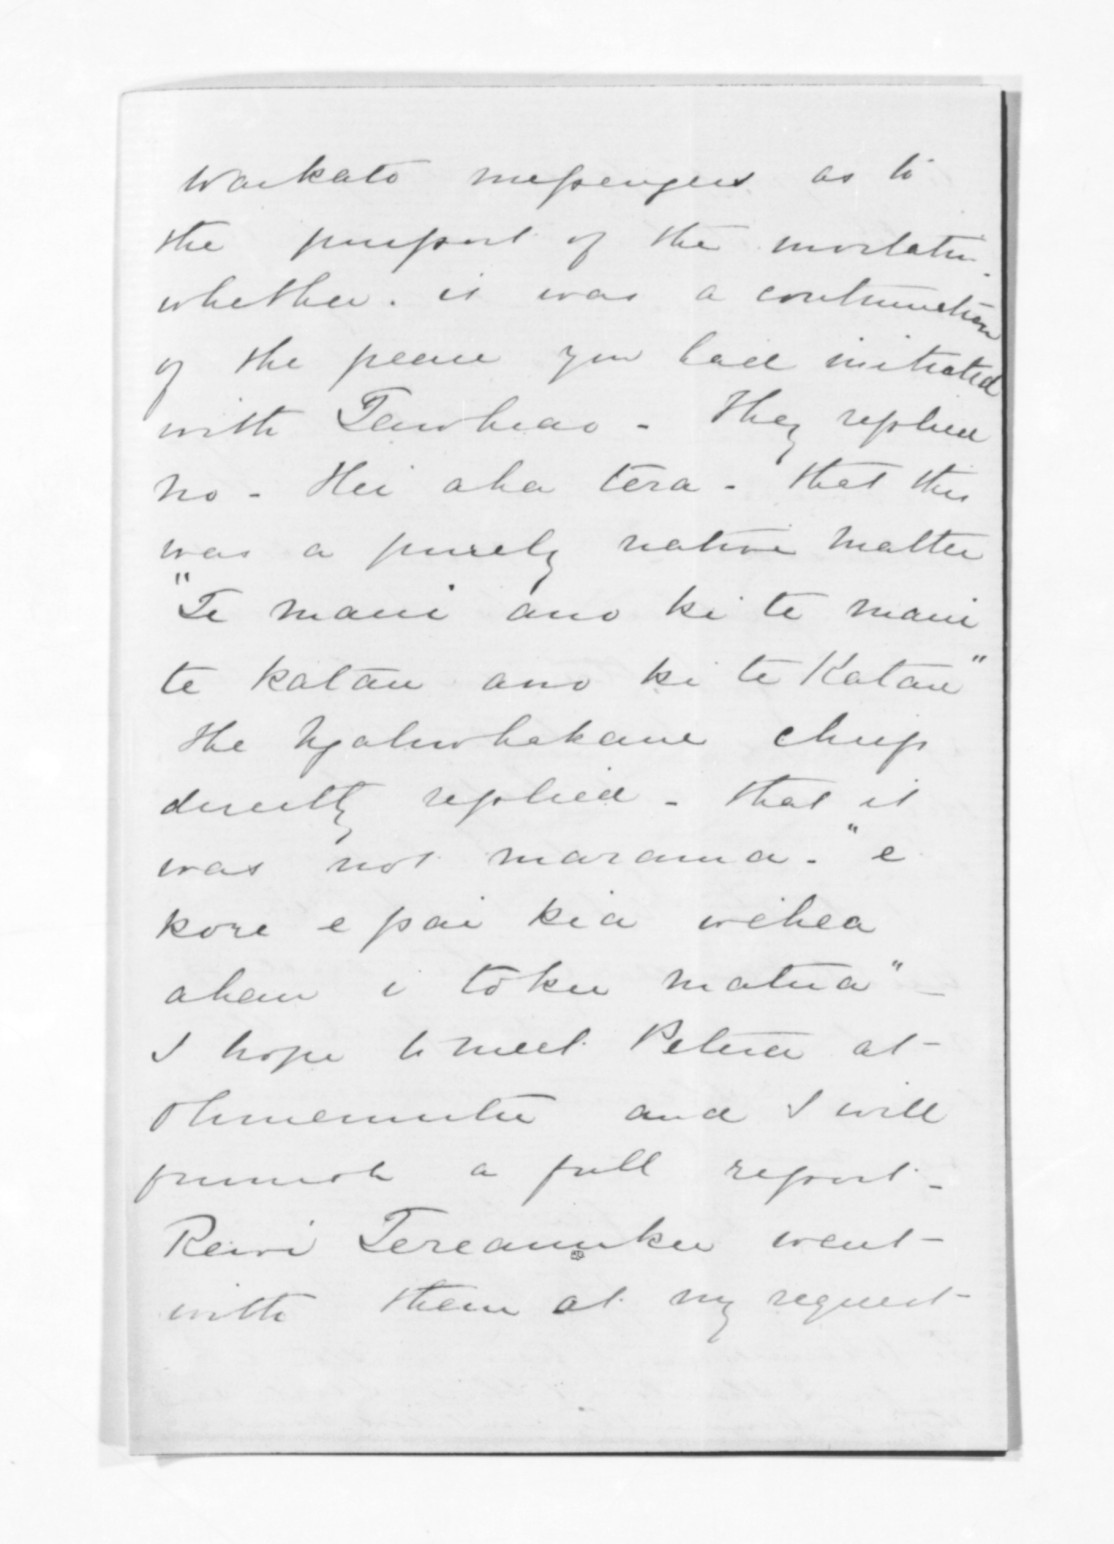 Waikato messengers as to
the purport of the invitation.
whether. it was a continuation
of the peace you had initiated
with Tawhiao - They replied
no - Hei aha tera - that this
was a purely native matter
"Te maui ano ki te maui
te katau ano ki te Katau"
the Ngatiwhakaue chiefs
directly replied - that it
was not marama - "e
kore e pai kia wehea
ahau i toku matua" -
I hope to meet Petera at -
Ohinemutu and I will
furnish a full report -
Rewi Tereanuku went -
with them at my request -